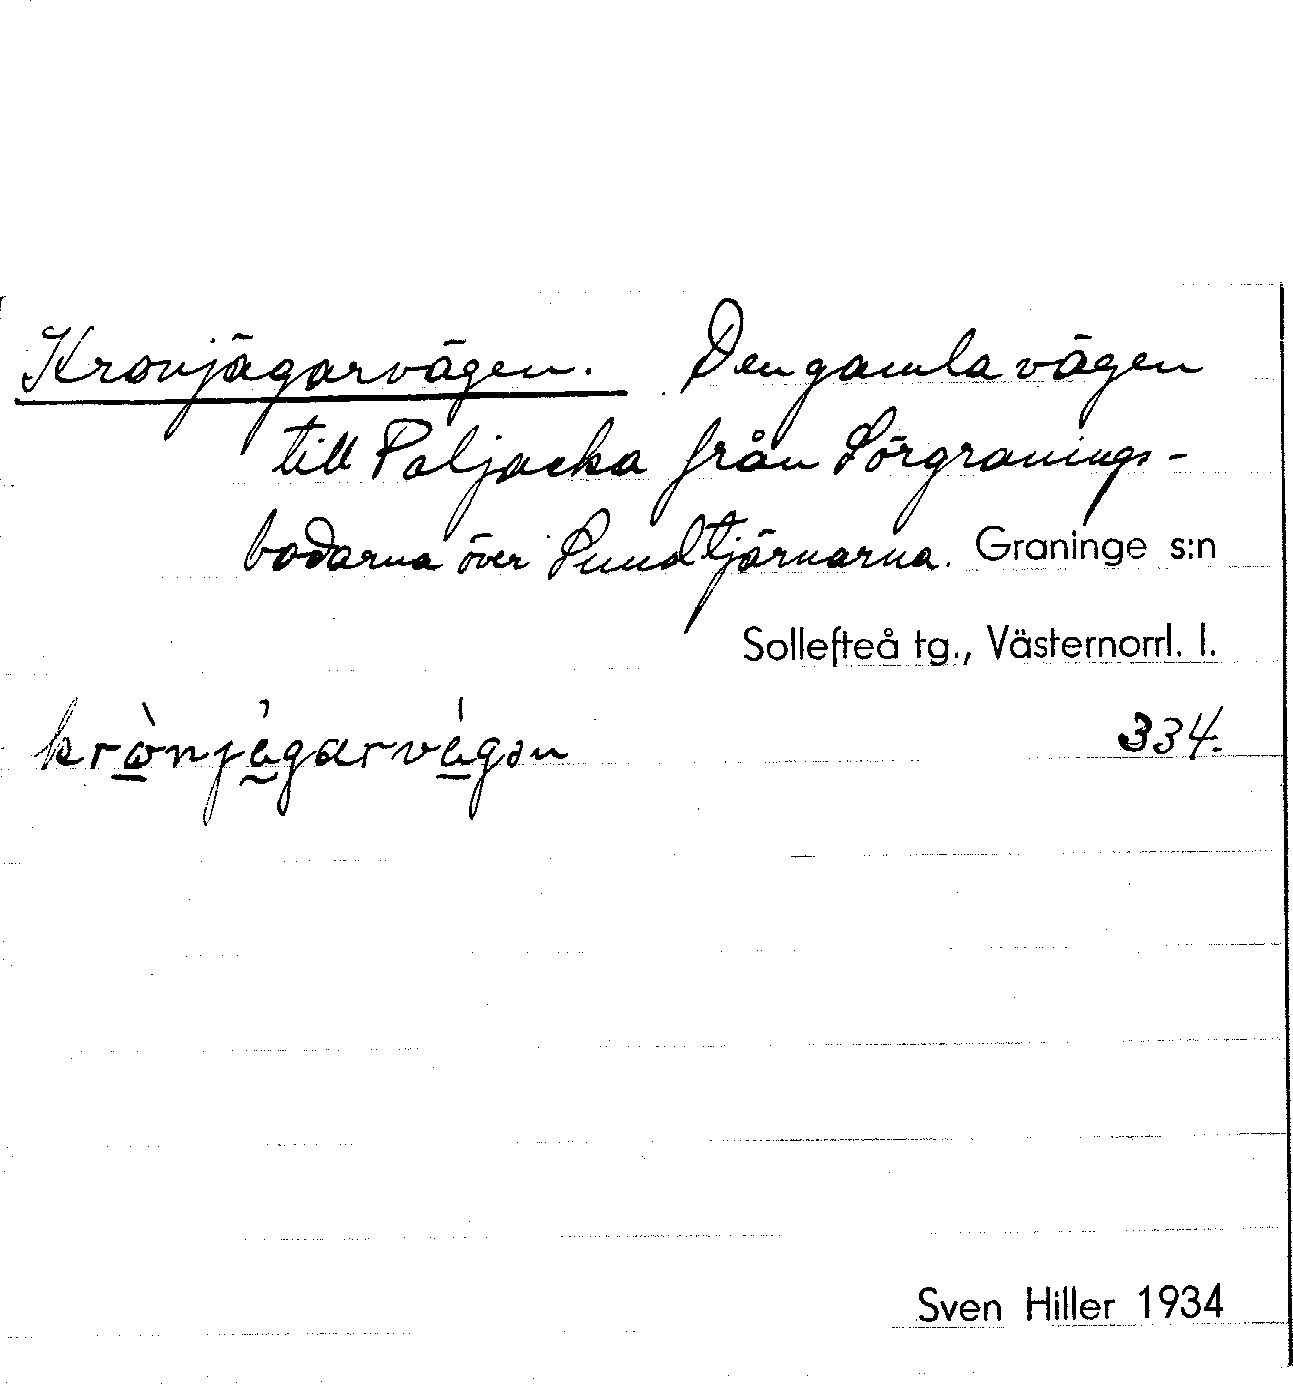 Kronjägarvägen. Den gamla vägen
till Poljacka från Sörgranings-
bodarna över Pundtjärnarna. Graninge s:n
Sollefteå tg., Västernorrl. l.
334.
Sven Hiller 1934